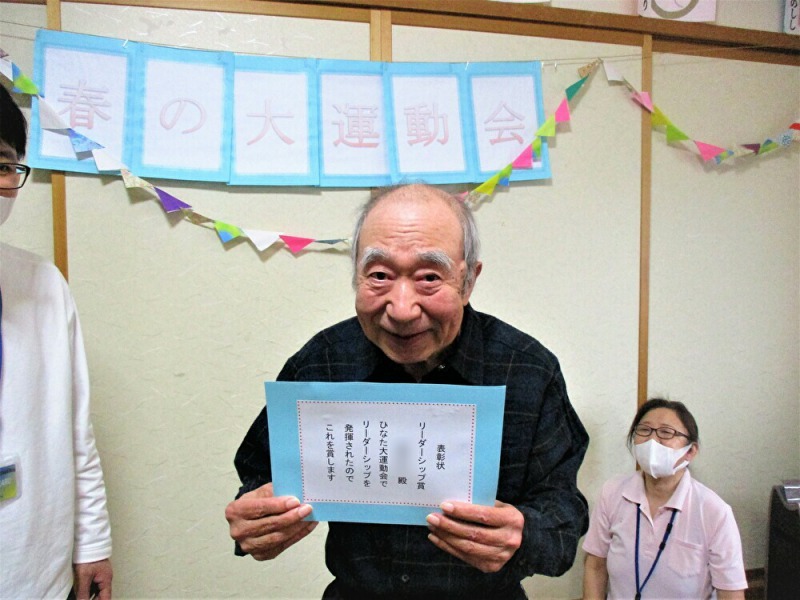 春の大運動会
表彰状
リーダーシップ賞
殿
ひなた大運動会で
リーダーシップを
発揮されたので
これを賞します
のしし
り